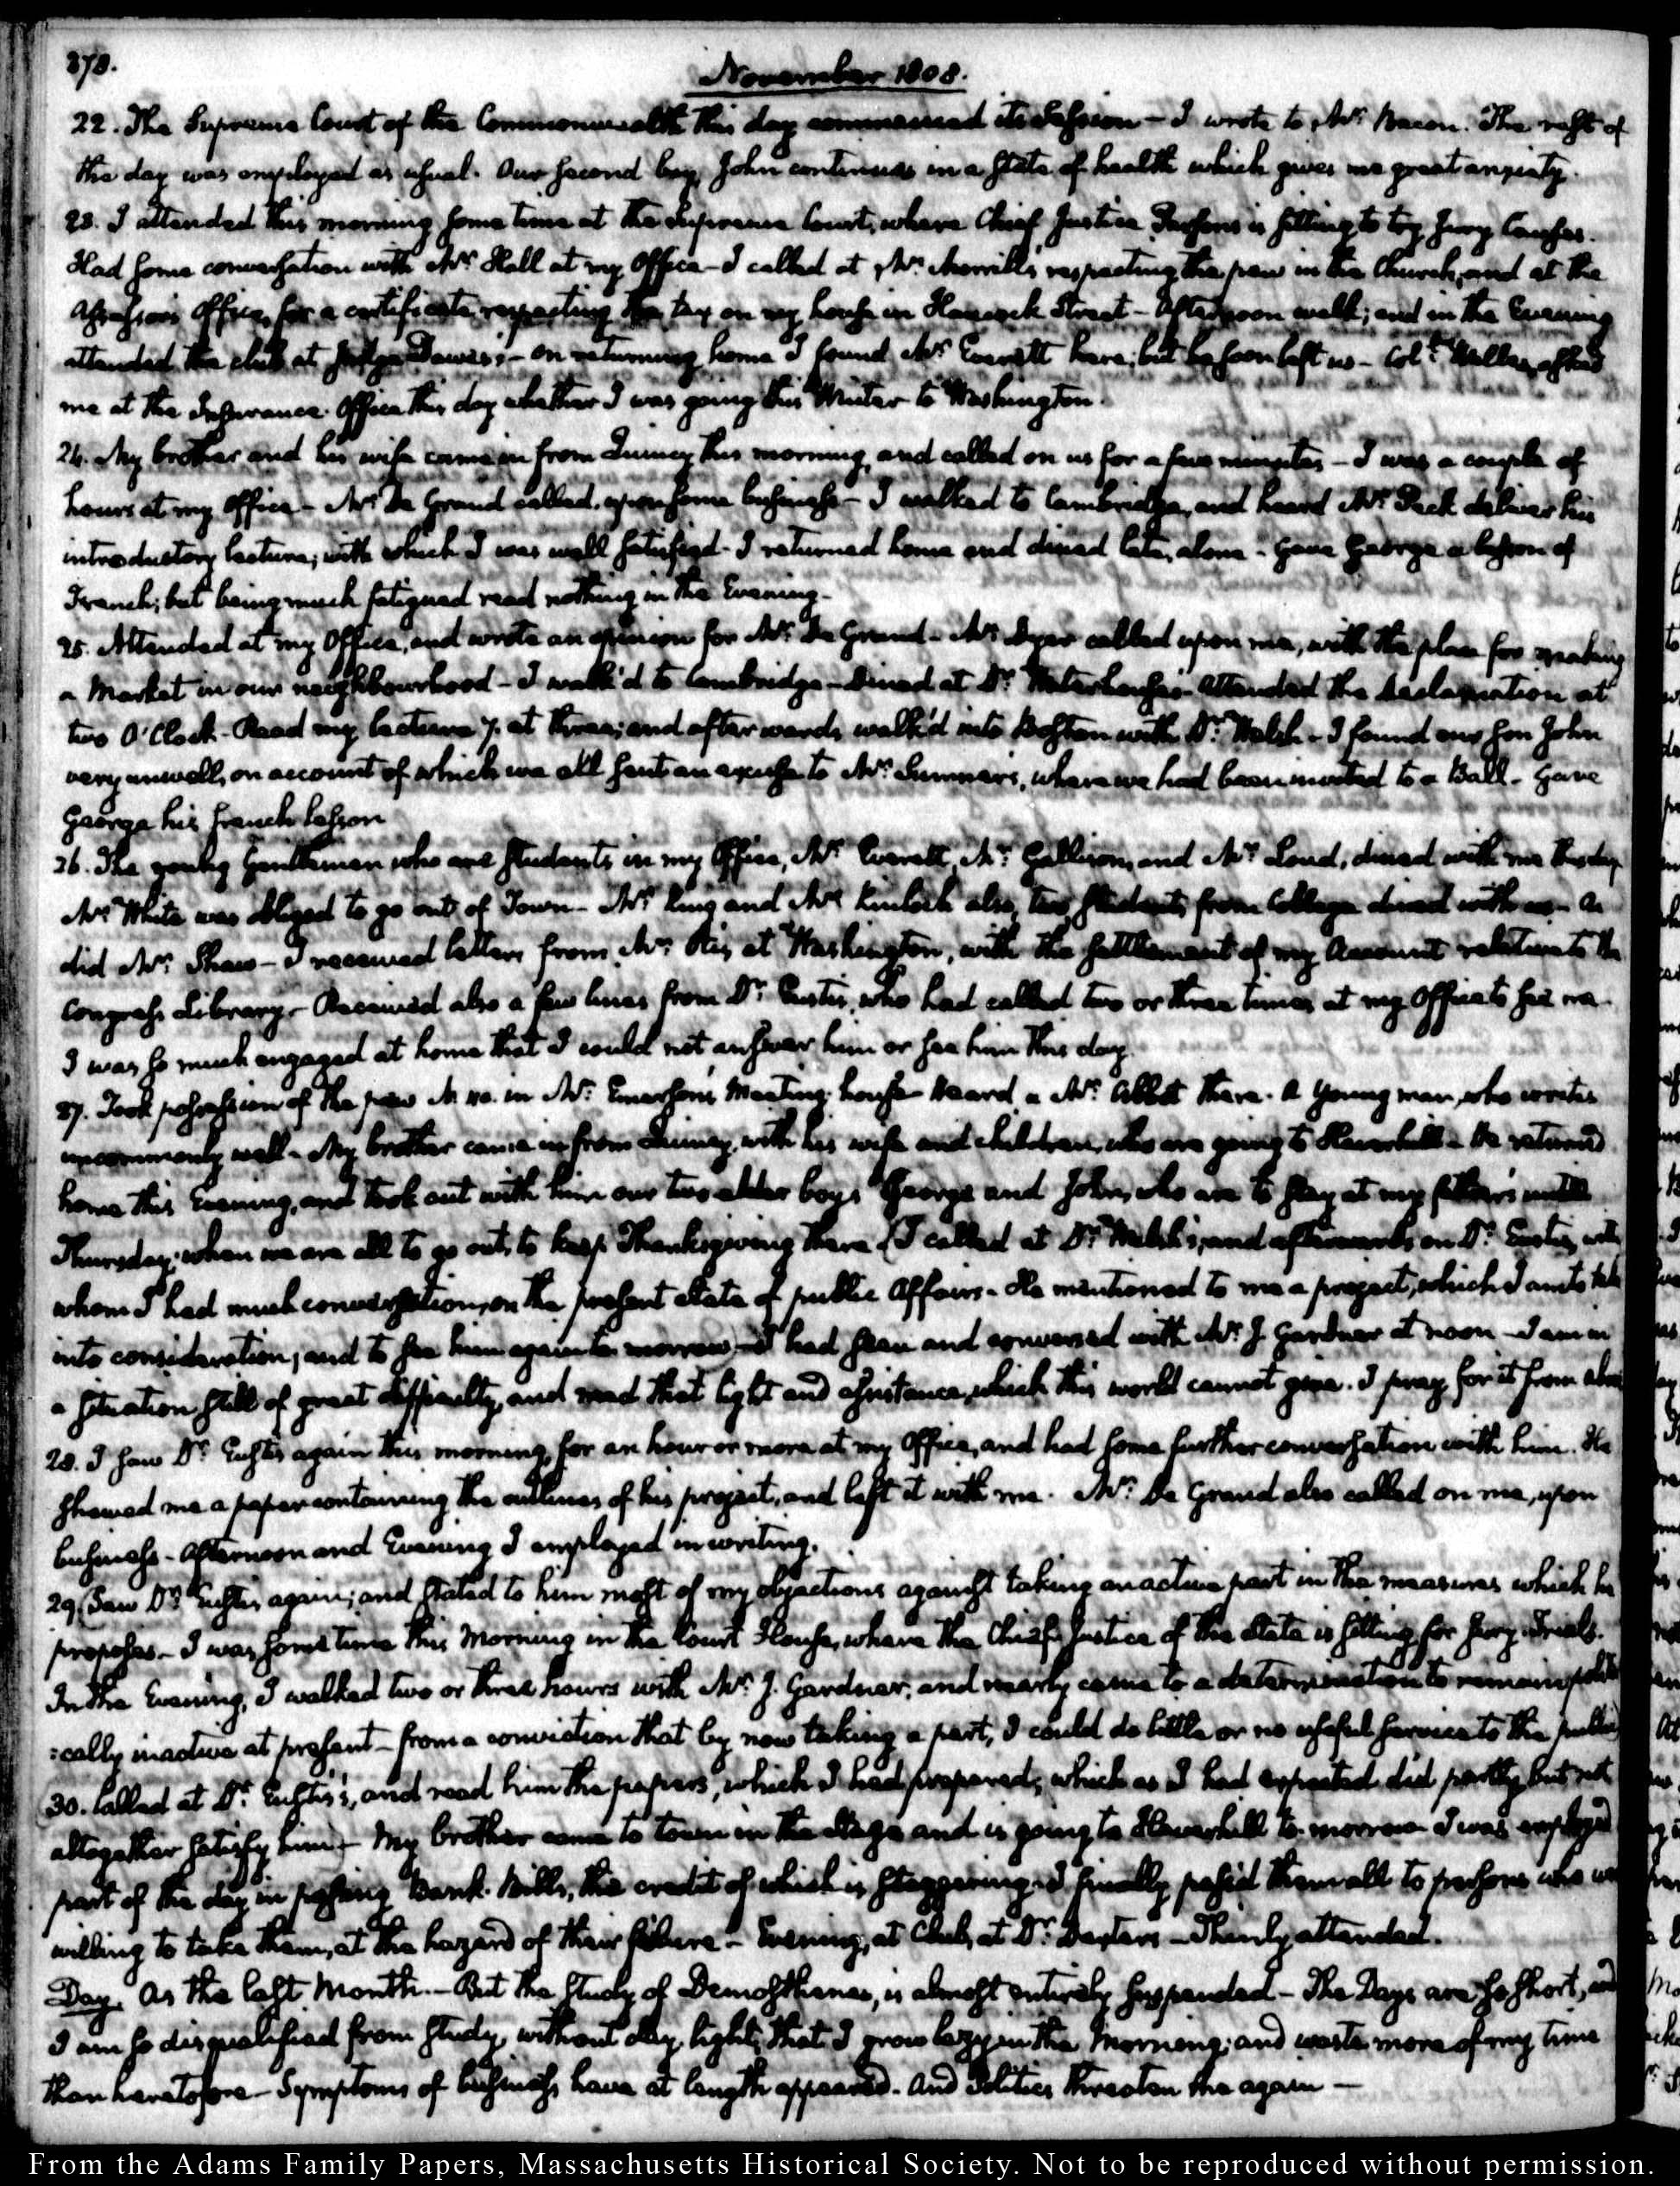 378.
November 1808.
22. The Supreme Court of the Commonwealth this day commenced its Session – I wrote to Mr. Bacon. The rest of
the day was employed as usual. Our second boy, John continues in a state of health which gives me great anxiety.
23. I attended this morning some time at the Supreme Court, where Chief Justice Parsons is sitting to try Jury Causes.
Had some conversation with Mr. Hall at my Office – I called at Mr. Merrill's respecting the pew in the Church, and at the
Assessors Office, for a certificate respecting the tax on my house in Hancock Street – Afternoon walk; and in the Evening
attended the club at Judge Dawes's – On returning home I found Mr. Everett here; but he soon left us – Coll. Walker asked
me at the Insurance Office this day whether I was going this Winter to Washington.
24. My brother and his wife came in from Quincy this morning, and called on us for a few minutes – I was a couple of
hours at my Office – Mr. De Grand called, upon some business – I walked to Cambridge, and heard Mr. Peck deliver his
introductory lecture; with which I was well satisfied – I returned home and dined late, alone – Gave George a lesson of
French; but being much fatigued read nothing in the Evening –
25. Attended at my Office, and wrote an opinion for Mr. De Grand – Mr. Dyer called upon me, with the plan for making
a Market in our neighbourhood – I walk'd to Cambridge – Dined at Dr. Waterhouse's – Attended the declamation at
two O'Clock – Read my lecture 7. at three; and afterwards walk'd into Boston with Dr. Welsh – I found our son John
very unwell, on account of which we all sent an excuse to Mr. Sumner's, where we had been invited to a Ball – Gave
George his french lesson
26. The young Gentlemen who are students in my Office, Mr. Everett, Mr. Gallison, and Mr. Loud, dined with me this day
Mr. White was obliged to go out of Town – Mr. King and Mr. Kinloch also two students from College dined with us – As
did Mr. Shaw – I received letters from Mr. Otis at Washington, with the settlement of my Account relative to the
Congress Library – Received also a few lines from Dr. Eustis, who had called two or three times at my Office to see me.
I was so much engaged at home that I could not answer him or see him this day.
27. Took possession of the pew N. 110. in Mr. Emerson's Meeting-house – Heard a Mr. Abbot there. A young man, who writes
uncommonly well – My brother came in from Quincy, with his wife and children, who are going to Haverhill – He returned
home this Evening, and took out with him our two elder boys George and John, who are to stay at my father's until
Thursday; when we are all to go out, to keep Thanksgiving there. I called at Dr. Welsh's, and afterwards on Dr. Eustis, with
whom I had much conversation, on the present state of public Affairs – He mentioned to me a project, which I am to take
into consideration, and to see him again to-morrow – I had seen and conversed with Mr. J. Gardner at noon – I am in
a situation still of great difficulty, and need that light and assistance, which this world cannot give. I pray for it from above
28. I saw Dr. Eustis again this morning, for an hour or more at my Office, and had some further conversation with him. He
shewed me a paper containing the outlines of his project, and left it with me. Mr. De Grand also called on me, upon
business – Afternoon and Evening I employed in writing.
29. Saw Dr. Eustis again; and stated to him most of my objections against taking an active part in the measures which he
proposes – I was some time this Morning in the Court House, where the Chief Justice of the State is sitting for Jury Trials.
In the Evening, I walked two or three hours with Mr. J. Gardner, and nearly came to a determination to remain politi
:cally inactive at present – from a conviction that by now taking a part, I could do little or no useful service to the public
30. Called at Dr. Eustis's, and read him the papers, which I had prepared, which as I had expected did partly, but not
altogether satisfy him – My brother came to town in the Stage and is going to Haverhill to-morrow I was employed
part of the day in passing Bank Bills, the credit of which is staggering. I finally pass'd them all to persons who were
willing to take them, at the hazard of their failure – Evening, at Club, at Dr. Dexter's – Thinly attended.
Day. As the last Month. – But the Study of Demosthenes, is almost entirely suspended – The Days are so short, and
I am so disqualified from study, without day-light, that I grow lazy in the Morning; and waste more of my time
than heretofore – Symptoms of business have at length appeared. And Politics threaten me again –
From the Adams Family Papers, Massachusetts Historical Society. Not to be reproduced without permission.